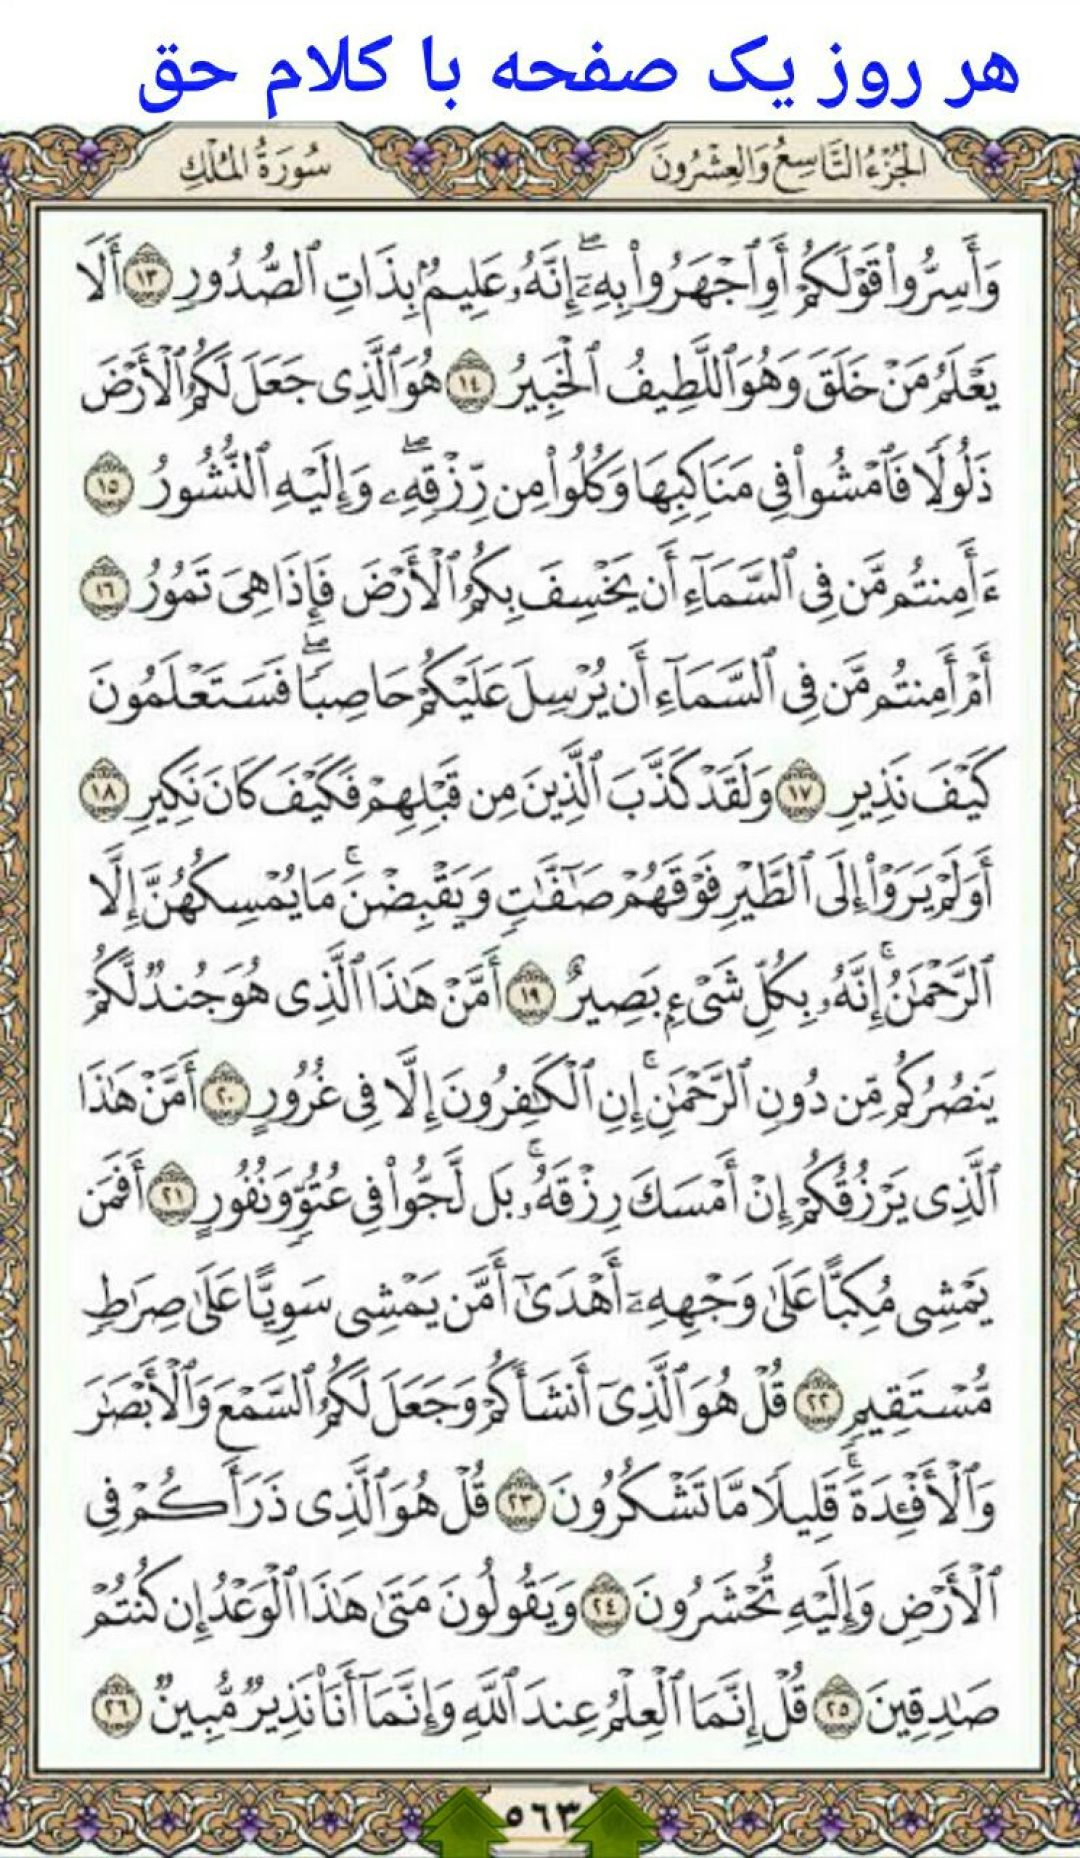 هر روز یک صفحه با کلام حق
الجُزْءُ التَّاسِعُ وَالعِشْرُونَ
سُورَةُ المُلْكِ
وَأَسِرُّوا۟ قَوْلَكُمْ أَوِ ٱجْهَرُوا۟ بِهِۦٓ ۖ إِنَّهُۥ عَلِيمٌۢ بِذَاتِ ٱلصُّدُورِ ١٣ أَلَا
يَعْلَمُ مَنْ خَلَقَ وَهُوَ ٱللَّطِيفُ ٱلْخَبِيرُ ١٤ هُوَ ٱلَّذِى جَعَلَ لَكُمُ ٱلْأَرْضَ
ذَلُولًا فَٱمْشُوا۟ فِى مَنَاكِبِهَا وَكُلُوا۟ مِن رِّزْقِهِۦ ۖ وَإِلَيْهِ ٱلنُّشُورُ ١٥
ءَأَمِنتُم مَّن فِى ٱلسَّمَآءِ أَن يَخْسِفَ بِكُمُ ٱلْأَرْضَ فَإِذَا هِىَ تَمُورُ ١٦
أَمْ أَمِنتُم مَّن فِى ٱلسَّمَآءِ أَن يُرْسِلَ عَلَيْكُمْ حَاصِبًا ۖ فَسَتَعْلَمُونَ
كَيْفَ نَذِيرِ ١٧ وَلَقَدْ كَذَّبَ ٱلَّذِينَ مِن قَبْلِهِمْ فَكَيْفَ كَانَ نَكِيرِ ١٨
أَوَلَمْ يَرَوْا۟ إِلَى ٱلطَّيْرِ فَوْقَهُمْ صَٰٓفَّٰتٍ وَيَقْبِضْنَ ۚ مَا يُمْسِكُهُنَّ إِلَّا
ٱلرَّحْمَٰنُ ۚ إِنَّهُۥ بِكُلِّ شَىْءٍۭ بَصِيرٌ ١٩ أَمَّنْ هَٰذَا ٱلَّذِى هُوَ جُندٌ لَّكُمْ
يَنصُرُكُم مِّن دُونِ ٱلرَّحْمَٰنِ ۚ إِنِ ٱلْكَٰفِرُونَ إِلَّا فِى غُرُورٍ ٢٠ أَمَّنْ هَٰذَا
ٱلَّذِى يَرْزُقُكُمْ إِنْ أَمْسَكَ رِزْقَهُۥ ۚ بَل لَّجُّوا۟ فِى عُتُوٍّ وَنُفُورٍ ٢١ أَفَمَن
يَمْشِى مُكِبًّا عَلَىٰ وَجْهِهِۦٓ أَهْدَىٰٓ أَمَّن يَمْشِى سَوِيًّا عَلَىٰ صِرَٰطٍ
مُّسْتَقِيمٍ ٢٢ قُلْ هُوَ ٱلَّذِىٓ أَنشَأَكُمْ وَجَعَلَ لَكُمُ ٱلسَّمْعَ وَٱلْأَبْصَٰرَ
وَٱلْأَفْـِٔدَةَ ۖ قَلِيلًا مَّا تَشْكُرُونَ ٢٣ قُلْ هُوَ ٱلَّذِى ذَرَأَكُمْ فِى
ٱلْأَرْضِ وَإِلَيْهِ تُحْشَرُونَ ٢٤ وَيَقُولُونَ مَتَىٰ هَٰذَا ٱلْوَعْدُ إِن كُنتُمْ
صَٰدِقِينَ ٢٥ قُلْ إِنَّمَا ٱلْعِلْمُ عِندَ ٱللَّهِ وَإِنَّمَآ أَنَا۠ نَذِيرٌ مُّبِينٌ ٢٦
٥٦٣